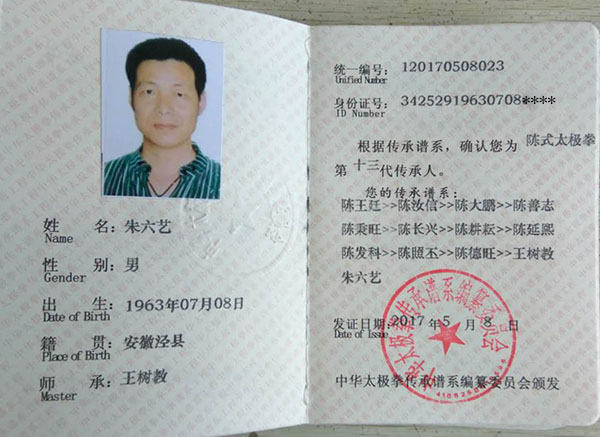 姓 名：朱六艺
Name
性 别：男
Gender
出 生：1963年07月08日
Date of Birth
籍 贯：安徽泾县
Place of Birth
师 承：王树教
Master
统一编号：120170508023
Unified Number
身份证号：34252919630708****
ID Number
根据传承谱系，确认您为 陈式太极拳
第 十三代传承人。
您的传承谱系：
陈王廷>>陈汝信>>陈大鹏>>陈善志
陈秉旺>>陈长兴>>陈耕耘>>陈延熙
陈发科>>陈照丕>>陈德旺>>王树教
朱六艺
发证日期：2017 年 5 月 8 日
Date of Issue
中华太极拳传承谱系编纂委员会
中华太极拳传承谱系编纂委员会颁发